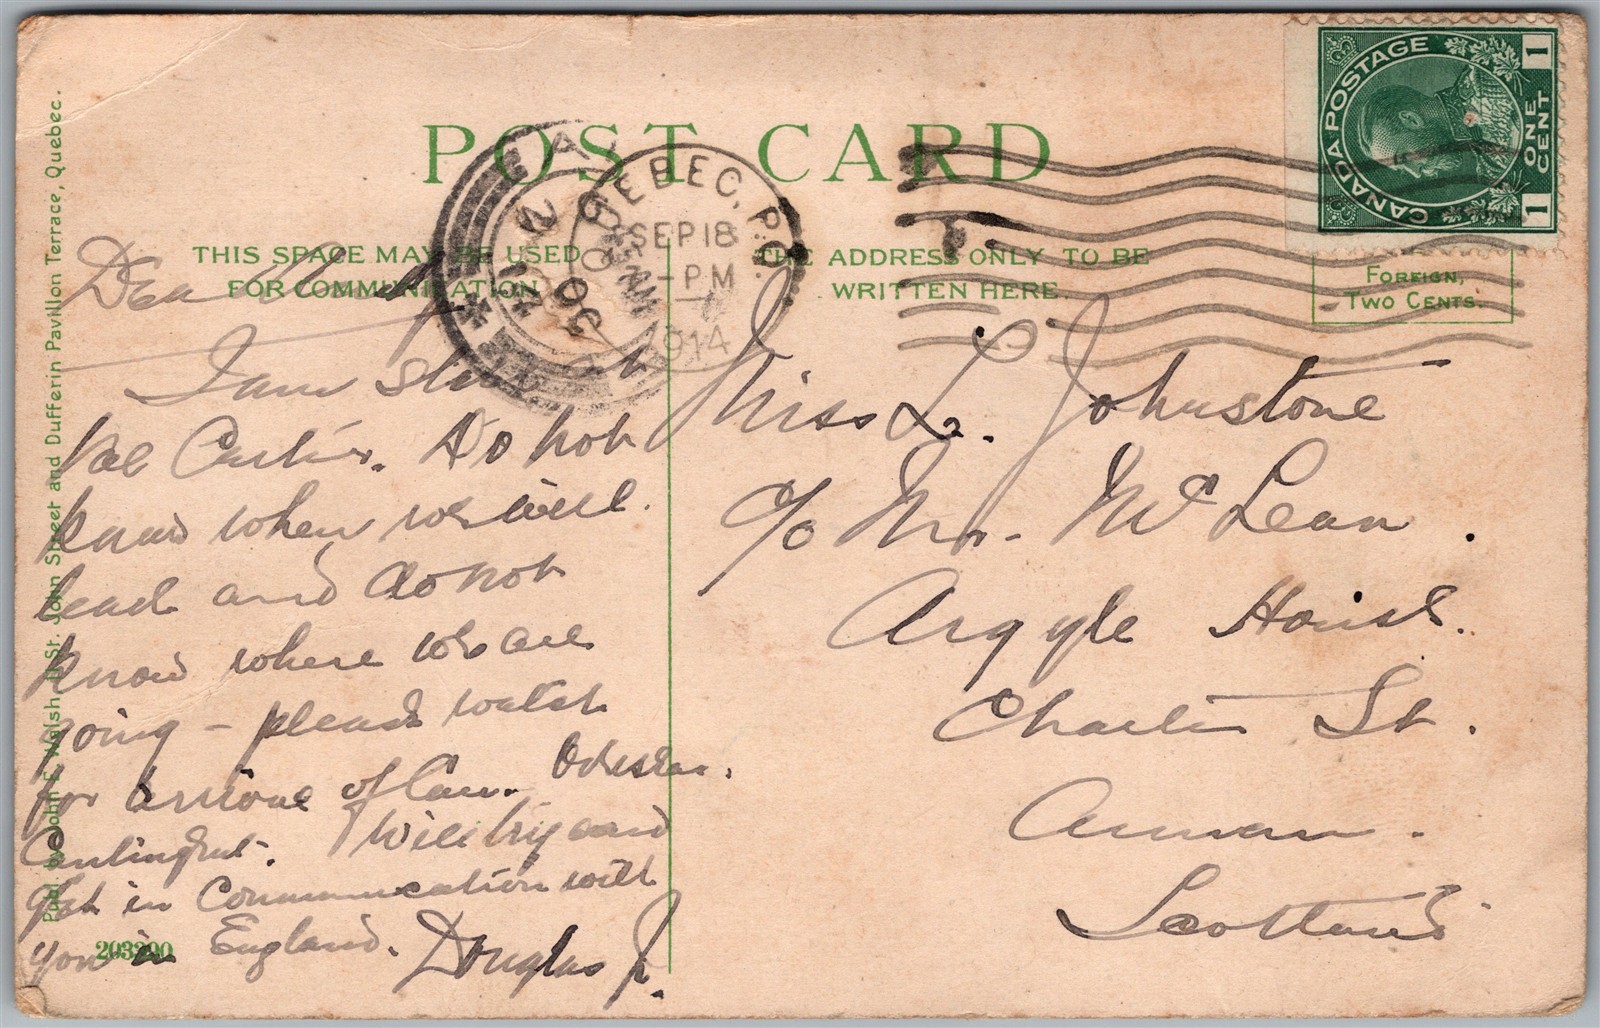 POST CARD
THIS SPACE MAY BE USED
FOR COMMUNICATION
THE ADDRESS ONLY TO BE
WRITTEN HERE.
CANADA POSTAGE
ONE CENT
1 1
FOREIGN,
TWO CENTS.
QUEBEC, P.Q.
SEP 18
-PM
1914
Publ. by John E. Walsh, 11 St. John Street and Dufferin Pavillon Terrace, Quebec.
Dear
I am still at
Val Cartier. Do not
know when we will
leave and do not
know where we are
going - please watch
for arrival of Can. Overseas.
Contingent. Will try and
get in communication with
you in England.
Douglas Jr.
203390
Miss L. Johnstone
c/o Mrs. McLean.
Argyle House.
Charles St.
Annan.
Scotland